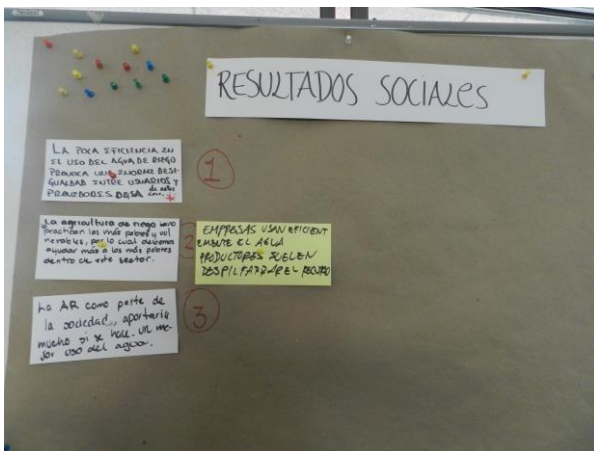 RESULTADOS SOCIALES
LA POCA EFICIENCIA EN
EL USO DEL AGUA DE RIEGO
PROVOCA UNA ENORME DESI-
GUALDAD ENTRE USUARIOS Y
PROVEEDORES
1
La agricultura de riego
practican los más pobres y vul
nerables, por lo cual debemos
ayudar más a los más pobres
dentro de este sector.
2
EMPRESAS USAN EFICIENT
EMENTE EL AGUA
PRODUCTORES SUELEN
DESPILFARRAR EL RECURSO
La AR como parte de
la sociedad, aportaría
mucho si se hace un me-
jor uso del agua.
3